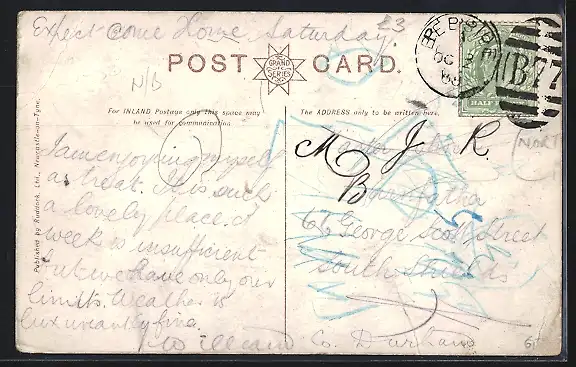 Expect come Home Saturday.
£3
N/B
POST CARD.
GRAND
SERIES
For INLAND Postage only this space may
be used for communication
The ADDRESS only to be written here.
Published by Ruddock, Ltd., Newcastle-on-Tyne.
HALF
B77
OC
I am enjoying myself
a treat. It is such
a lovely place. A
week is insufficient
but we have only our
limits. Weather is
luxuriantly fine.
William
M J R.
B
Master
66 George Scott Street
South Shields
Co. Durham